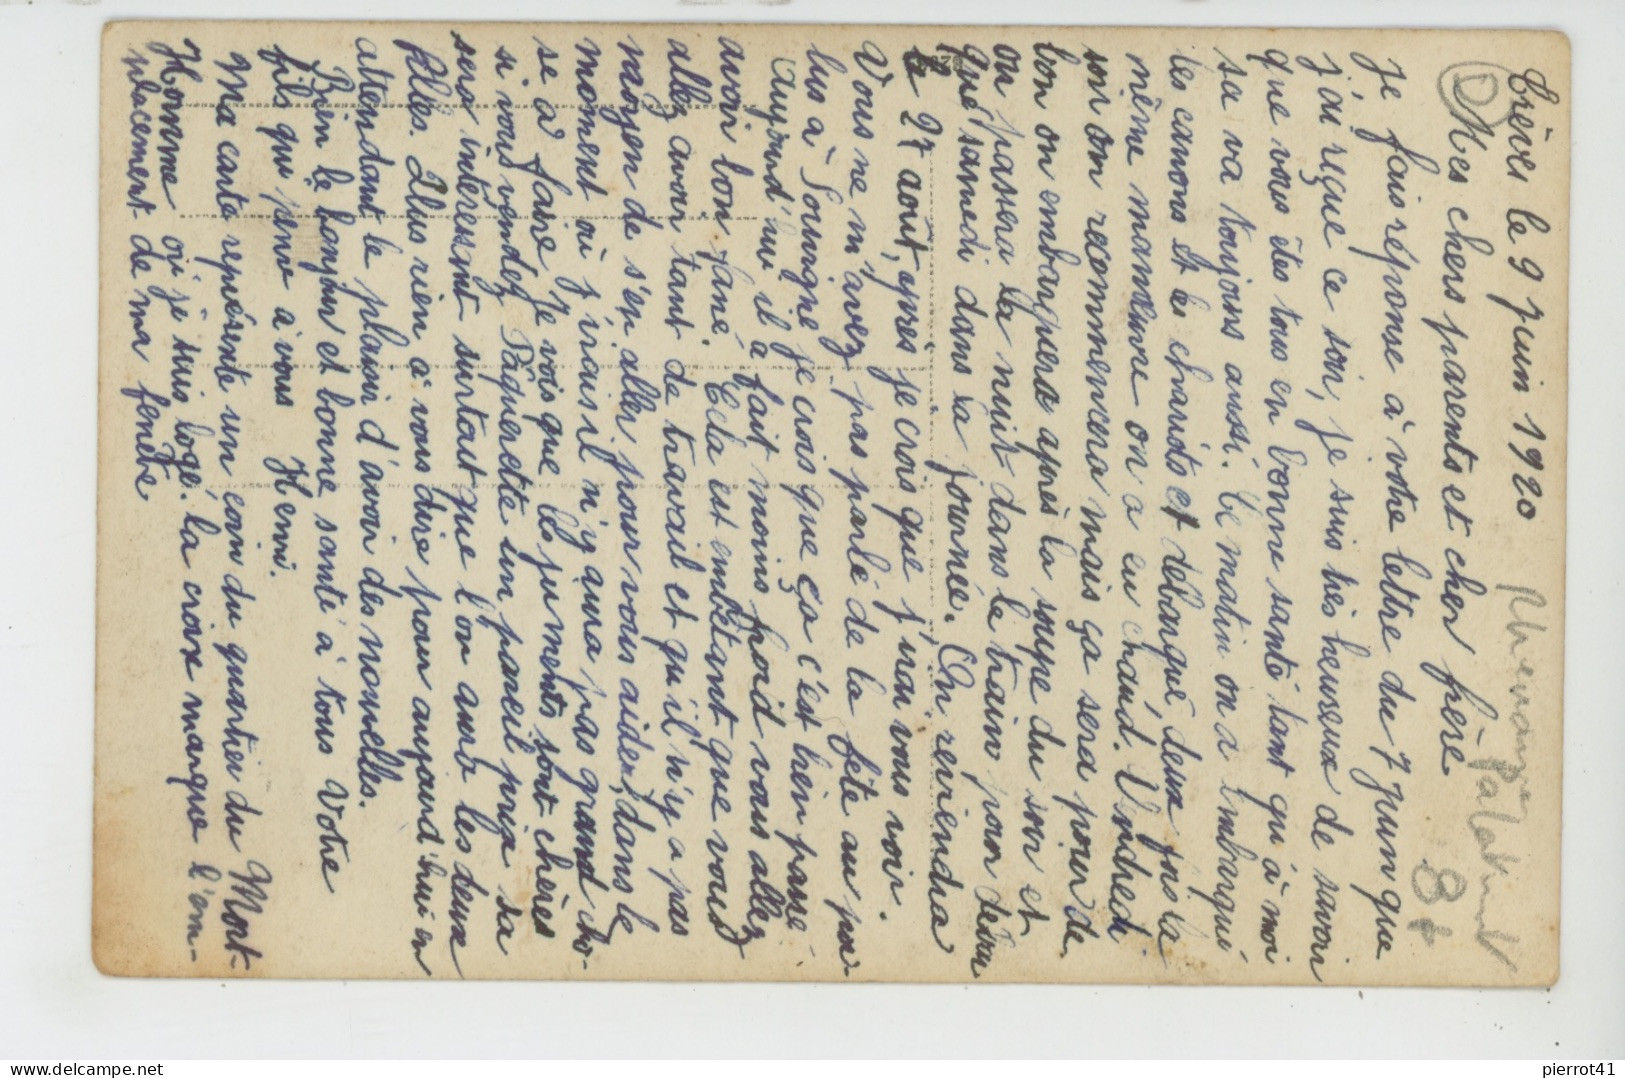 Trèves le 9 Juin 1920
Mes chers parents et cher frère
Je fais réponse à votre lettre du 7 Juin que
j'ai reçue ce soir, je suis très heureux de savoir
que vous êtes tous en bonne santé tant qu'à moi
sa va toujours aussi. Ce matin on a embarqué
les canons et les chariots et débarqué deux fois la
même manœuvre on a eu chaud. Vendredi
soir on recommencera mais ça sera pour de
bon on embarquera après la soupe du soir et
on passera la nuit dans le train pour
que samedi dans la journée. On reviendra
le 27 août, après je crois que j'irai vous voir.
Vous ne m'avez pas parlé de la fête au pa-
lus à Souvigné je crois que ça c'est bien passé
Aujourd'hui il a fait moins froid vous allez
avoir bon fané. Cela est embêtant que vous
allez avoir tant de travail et qu'il n'y a pas
moyen de s'en aller pour vous aider, dans le
moment où j'irais il n'y aura pas grand cho-
se à faire. Je vois que les juments sont chères
si vous vendez Pâquerette un pareil prix sa
sera intéressant surtout que l'on aura les deux
Plus rien à vous dire pour aujourd'hui en
attendant le plaisir d'avoir des nouvelles.
Bien le bonjour et bonne santé à tous Votre
fils qui pense à vous Henri.
Ma carte représente un coin du quartier du Mont-
Homme où je suis logé. la croix marque l'em-
placement de ma fenêtre
D
8+
pierrot41